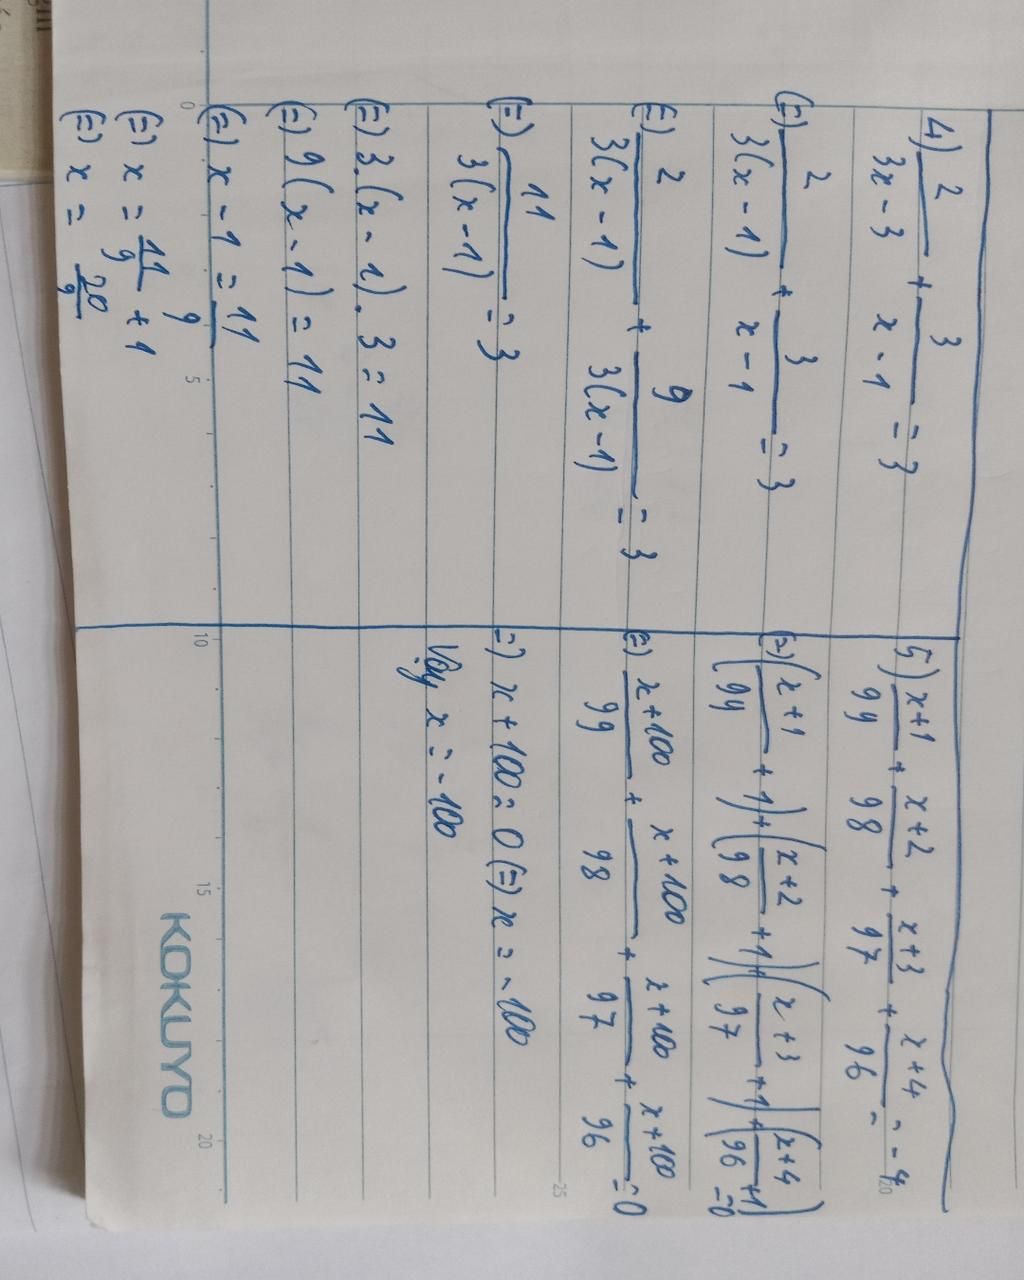 4) 2/(3x-3) + 3/(x-1) = 3
(=) 2/(3(x-1)) + 3/(x-1) = 3
(=) 2/(3(x-1)) + 9/(3(x-1)) = 3
(=) 11/(3(x-1)) = 3
(=) 3.(x-1).3 = 11
(=) 9(x-1) = 11
(=) x-1 = 11/9
(=) x = 11/9 + 1
(=) x = 20/9
5) (x+1)/99 + (x+2)/98 + (x+3)/97 + (x+4)/96 = -4
(=) ((x+1)/99 + 1) + ((x+2)/98 + 1) + ((x+3)/97 + 1) + ((x+4)/96 + 1) = 0
(=) (x+100)/99 + (x+100)/98 + (x+100)/97 + (x+100)/96 = 0
=) x+100 = 0 (=) x = -100
Vậy x = -100
0
5
10
15
20
20
25
KOKUYO